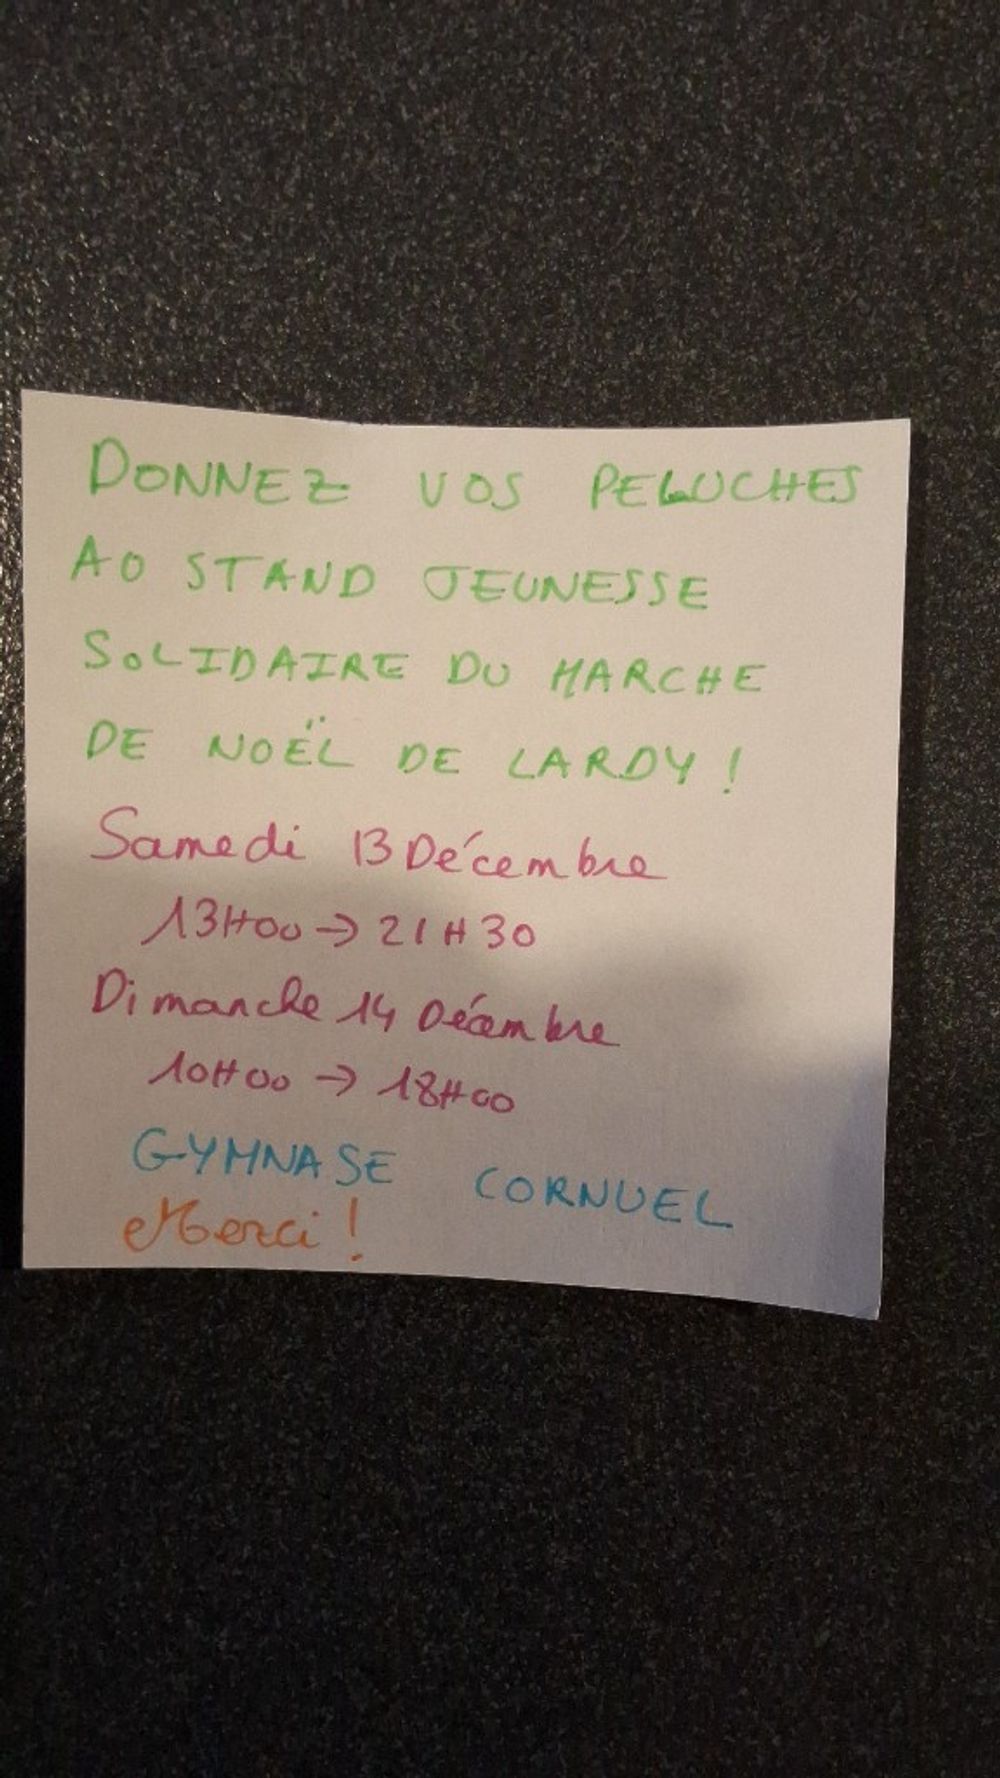 DONNEZ VOS PELUCHES
AU STAND JEUNESSE
SOLIDAIRE DU MARCHE
DE NOËL DE LARDY !
Samedi 13 Décembre
13H00 → 21H30
Dimanche 14 Décembre
10H00 → 18H00
GYMNASE CORNUEL
Merci !